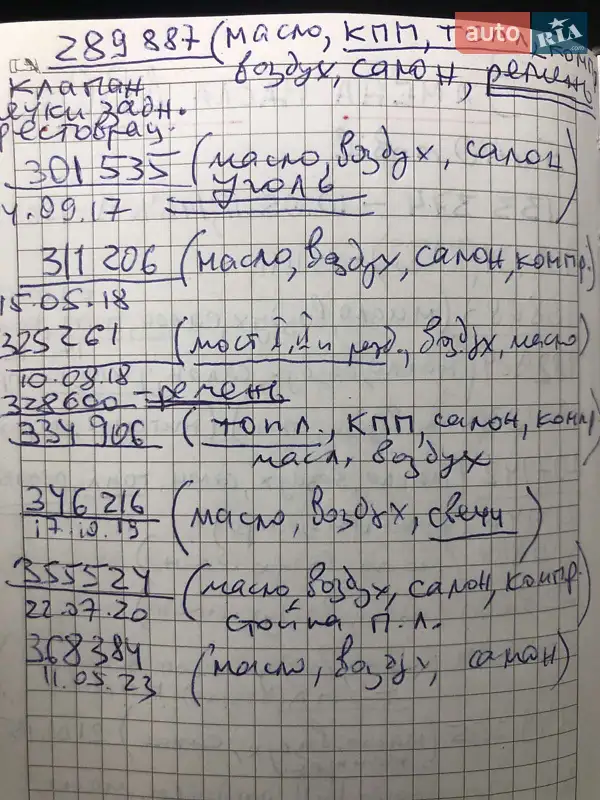 289 887 (масло, КПП, т
auto RIA.com
воздух, салон, ремень
Клапан
задн.
рестоврац.
301 535 (масло, воздух, салон)
уголь
4.09.17
311 206 (масло, воздух, салон, компр.)
15.05.18
325261 (мост 1, 1 и разд., воздух, масло)
10.08.18
328600 - ремень
334 906 (топл., КПП, салон, компр)
масл, воздух
346 216 (масло, воздух, свечи)
17.10.19
355524 (масло, воздух, салон, компр.
22.07.20 стойка п.л.
368384 (масло, воздух, салон)
11.05.23